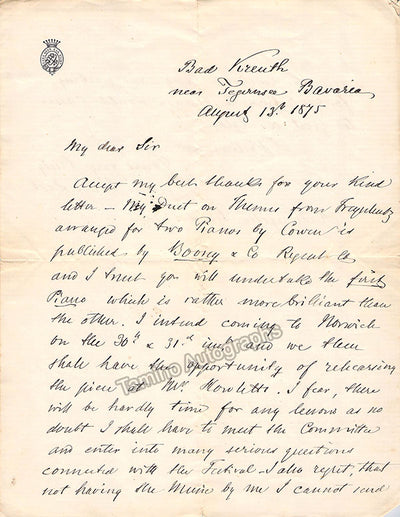 Bad Kreuth
near Tegernsee Bavaria
August 13th 1875
My dear Sir
Accept my best thanks for your kind
letter – My Duet on Themes from Freyschutz
arranged for two Pianos by Cowen is
published by Boosey & Co Regent St
and I trust you will undertake the first
Piano which is rather more brilliant than
the other. I intend coming to Norwich
on the 30th & 31st inst and we then
shall have the opportunity of rehearsing
the piece at Mr. Howletts. I fear, there
will be hardly time for any lessons as no
doubt I shall have to meet the Committee
and enter into many serious questions
connected with the Festival. I also regret, that
not having the Music by me I cannot send
Tamino Autographs